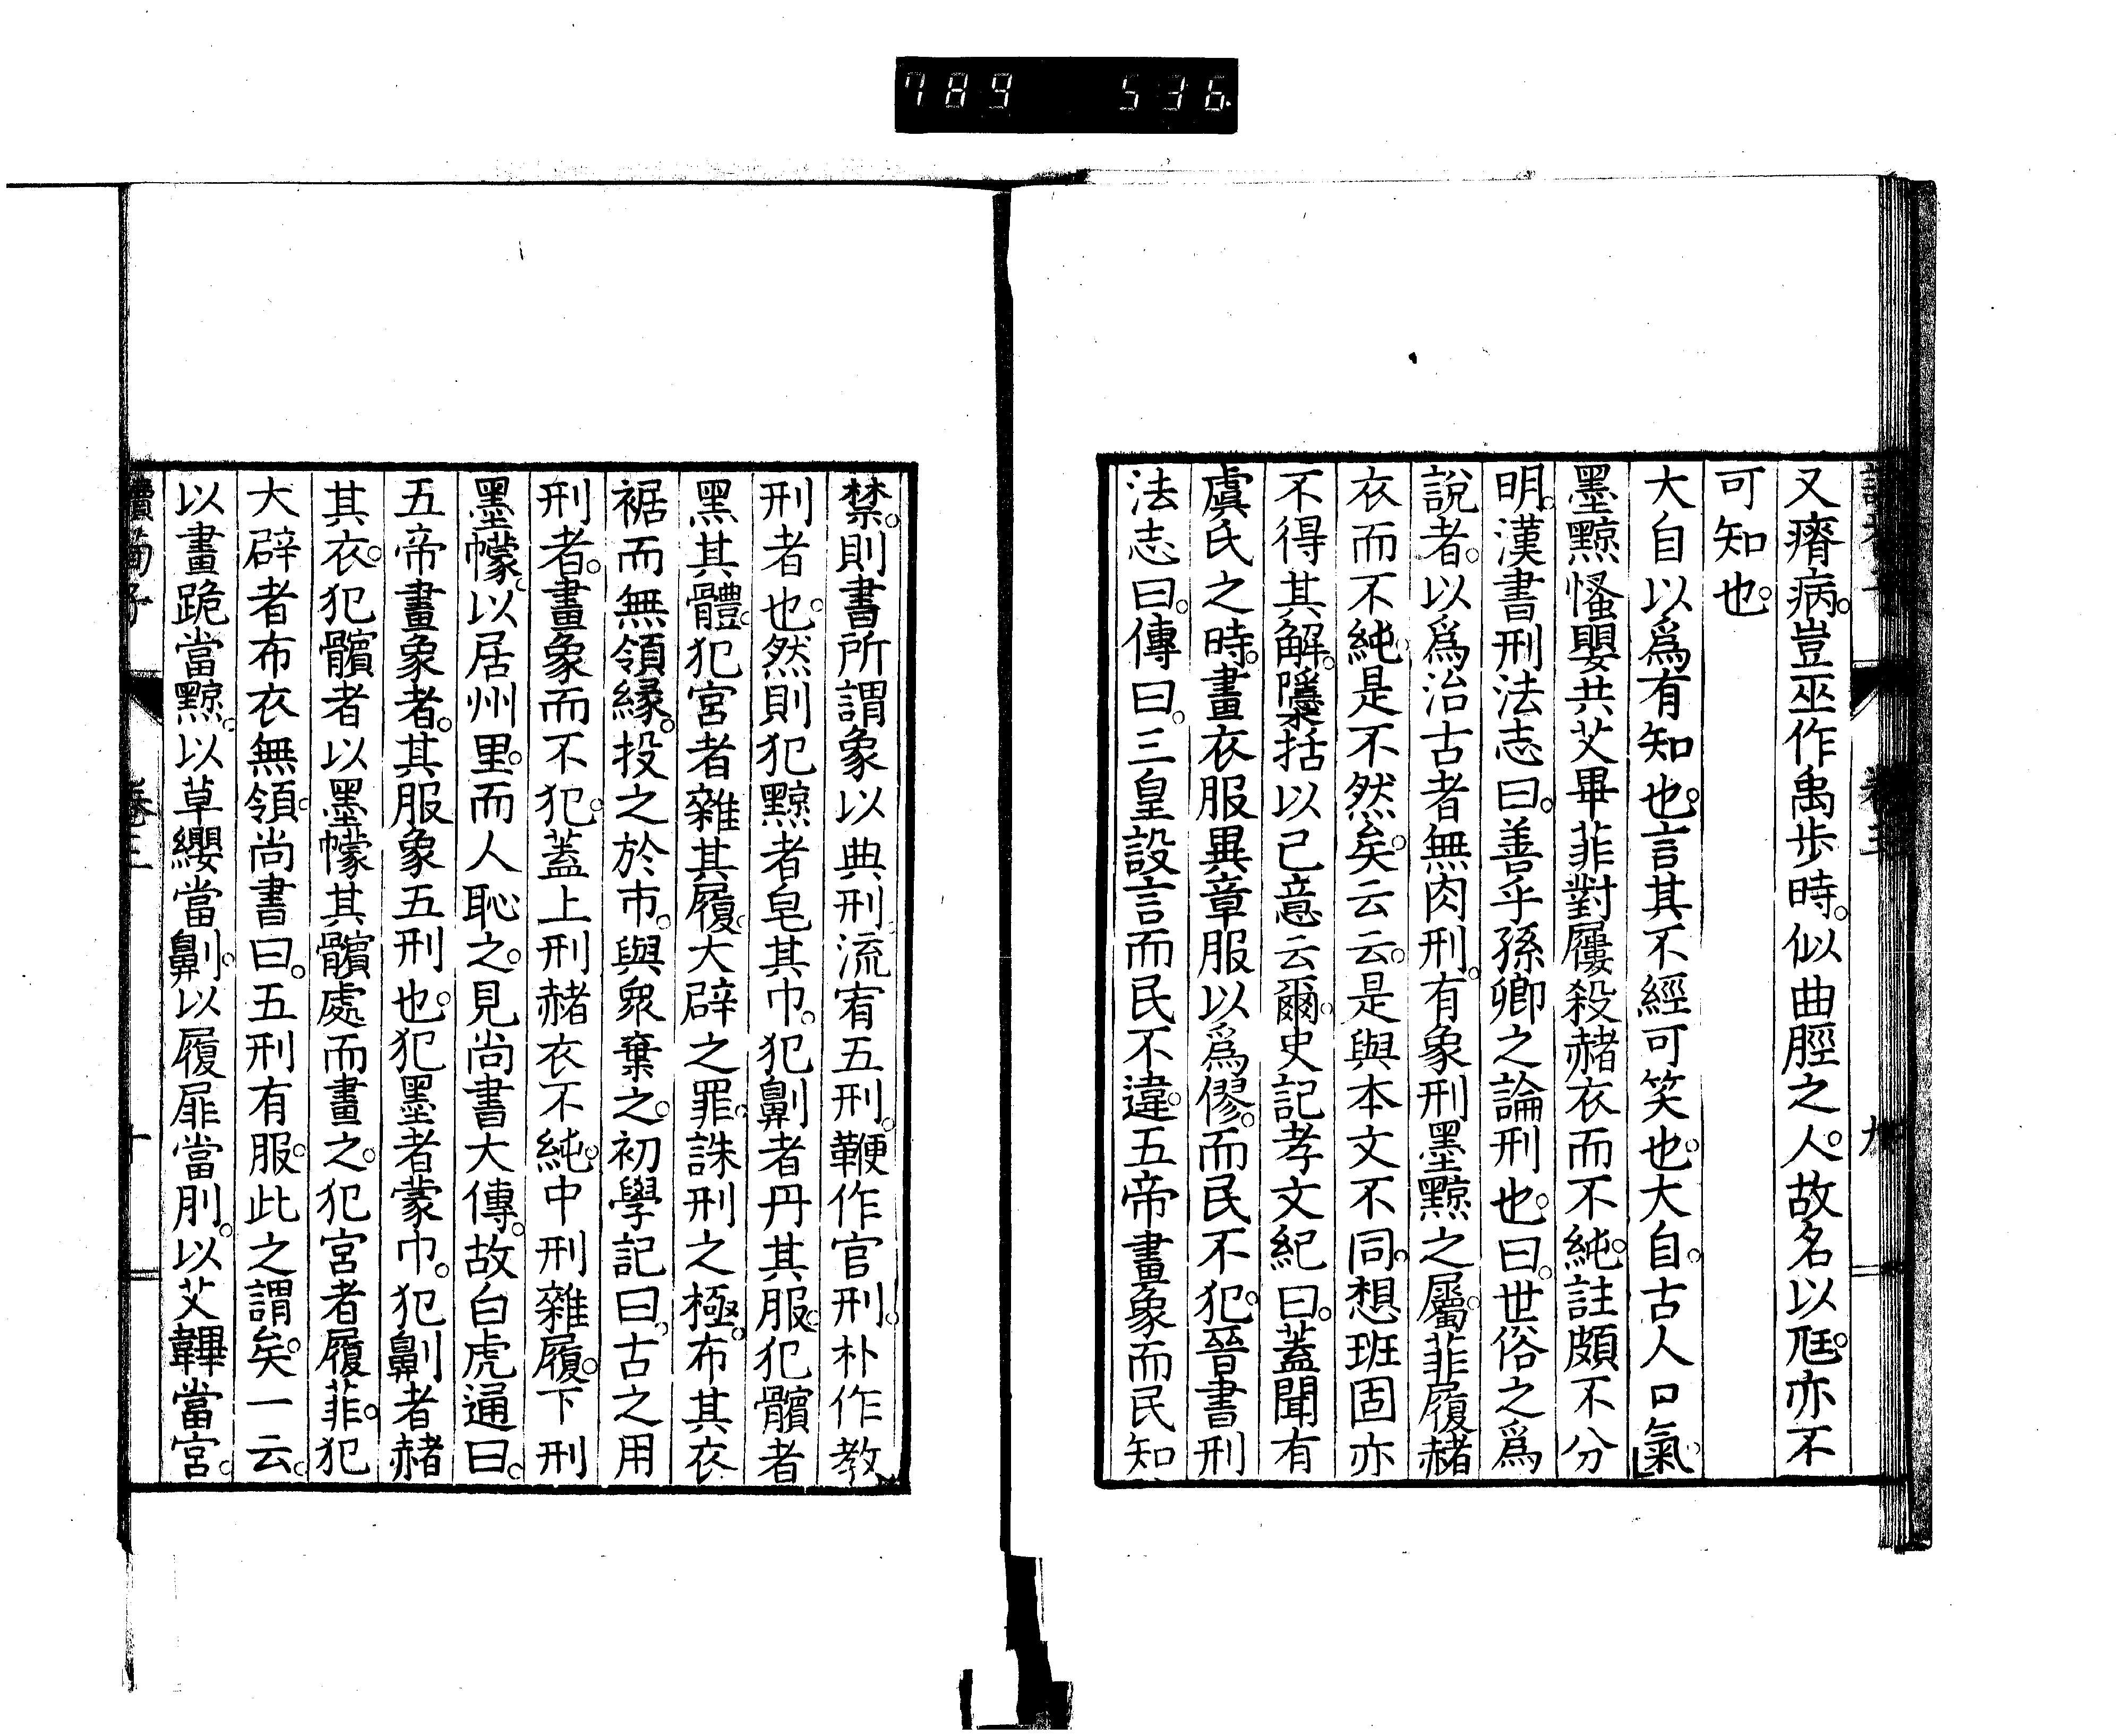 789 536
又瘠病。豈巫作禹步時。似曲脛之人。故名以尫。亦不
可知也。
大自以爲有知也。言其不經可笑也。也大自。古人口氣。
墨黥慅嬰共艾畢菲對屨殺赭衣而不純。註頗不分
明。漢書刑法志曰。善乎孫卿之論刑也。曰。世俗之爲
說者。以爲治古者無肉刑。有象刑墨黥之屬。菲履赭
衣而不純。是不然矣。云云。是與本文不同。想班固亦
不得其解。隱括以己意云爾。史記孝文紀曰。蓋聞有
虞氏之時。畫衣服異章服以爲僇。而民不犯。晉書刑
法志曰。傳曰。三皇設言而民不違。五帝畫象而民知
禁。則書所謂象以典刑流宥五刑。鞭作官刑。朴作教
刑者也。然則犯黥者皂其巾。犯劓者丹其服。犯髕者
黑其體。犯宮者雜其履。大辟之罪。誅刑之極。布其衣
裾而無領緣。投之於市。與衆棄之。初學記曰。古之用
刑者。畫象而不犯。蓋上刑赭衣不純。中刑雜履。下刑
墨幪。以居州里。而人恥之。見尚書大傳。故白虎通曰。
五帝畫象者。其服象五刑也。犯墨者蒙巾。犯劓者赭
其衣。犯髕者以墨幪其髕處而畫之。犯宮者履菲。犯
大辟者布衣無領。尚書曰。五刑有服。此之謂矣。一云。
以畫跪當黥。以草纓當劓。以履屝當刖。以艾韠當宮。